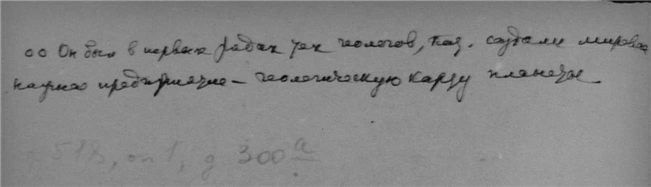 оо Он был в первых рядах тех геологов, кот. создали мировое
научное предприятие – геологическую карту планеты
ф 518, оп 1, д 300 а